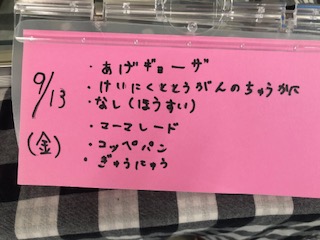 9/13
(金)
・あげギョーザ
・けいにくととうがんのちゅうかに
・なし(ほうすい)
・マーマレード
・コッペパン
・ぎゅうにゅう